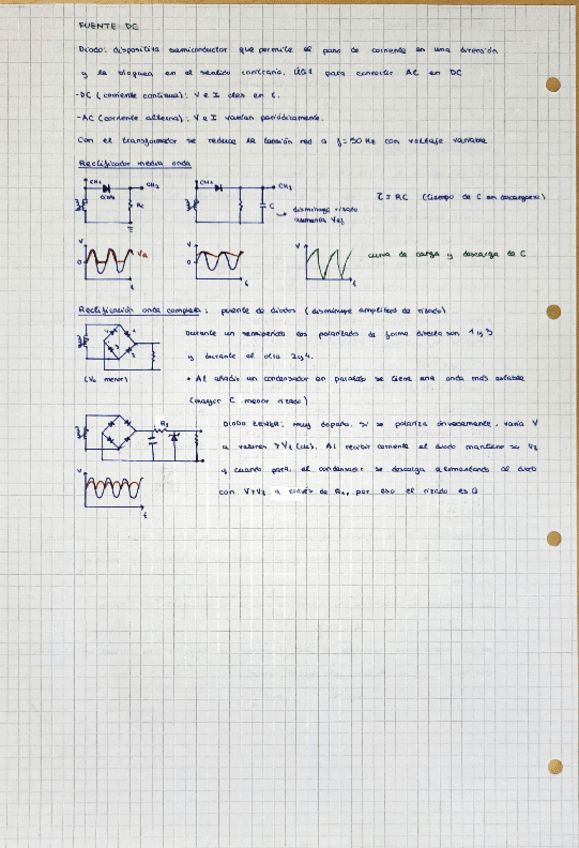 FUENTE DC
Diodo: dispositivo semiconductor que permite el paso de corriente en una dirección
y la bloquea en el sentido contrario. Útil para convertir AC en DC
-DC (corriente continua): V e I ctes en t.
-AC (corriente alterna): V e I varían periódicamente.
Con el transformador se reduce la tensión red a f=50 Hz con voltaje variable
Rectificador media onda
CH1 CH2 CH1 CH2
RL C
τ = RC (tiempo de C en descargarse)
disminuye rizado
aumenta
V VR V V curva de carga y descarga de C
0 0
t t t
Rectificación onda completa: puente de diodos (disminuye amplitud de rizado)
Durante un semiperiodo los polarizados de forma directa son 1 y 3
y durante el otro 2 y 4.
(Vo menor) • Al añadir un condensador en paralelo se tiene una onda más estable
(mayor C menor rizado)
DIODO ZENER: muy dopado. Si se polariza inversamente, varía V
a valores >Vz (cte). Al recibir corriente el diodo mantiene su Vz
y cuando para, el condensador se descarga alimentando al diodo
con V>Vz a través de, por eso el rizado es 0
V
t